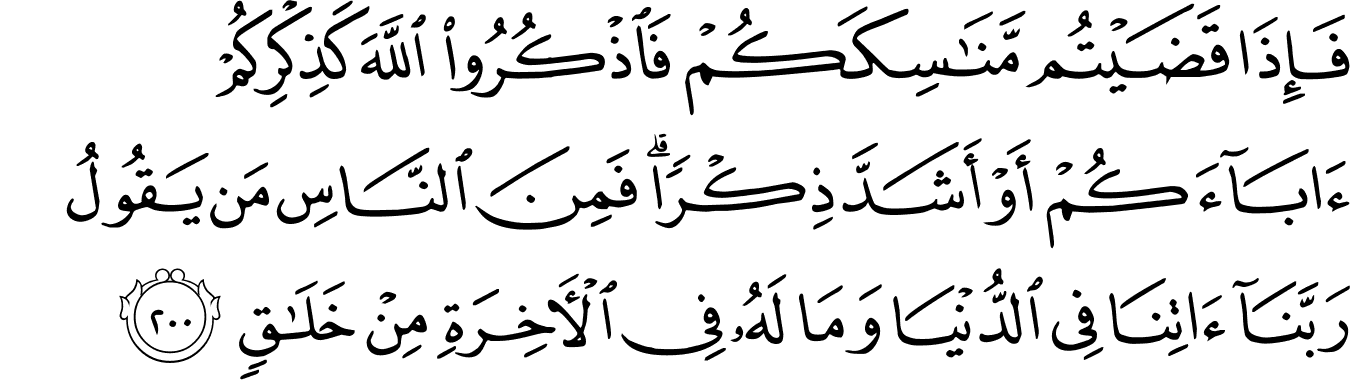 فَإِذَا قَضَيْتُم مَّنَـٰسِكَكُمْ فَٱذْكُرُوا۟ ٱللَّهَ كَذِكْرِكُمْ
ءَابَآءَكُمْ أَوْ أَشَدَّ ذِكْرًا ۗ فَمِنَ ٱلنَّاسِ مَن يَقُولُ
رَبَّنَآ ءَاتِنَا فِى ٱلدُّنْيَا وَمَا لَهُۥ فِى ٱلْـَٔاخِرَةِ مِنْ خَلَـٰقٍ ٢٠٠